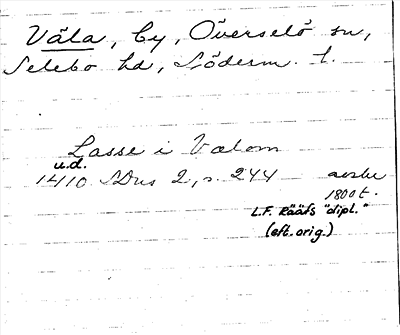 Väla, by, Överselö sn,
Selebo hd, Söderm. l.
Lasse i Valom
u.d.
1410 SDns 2, s. 244 avskr
1800 t.
L.F. Rääfs "dipl."
(eft. orig.)